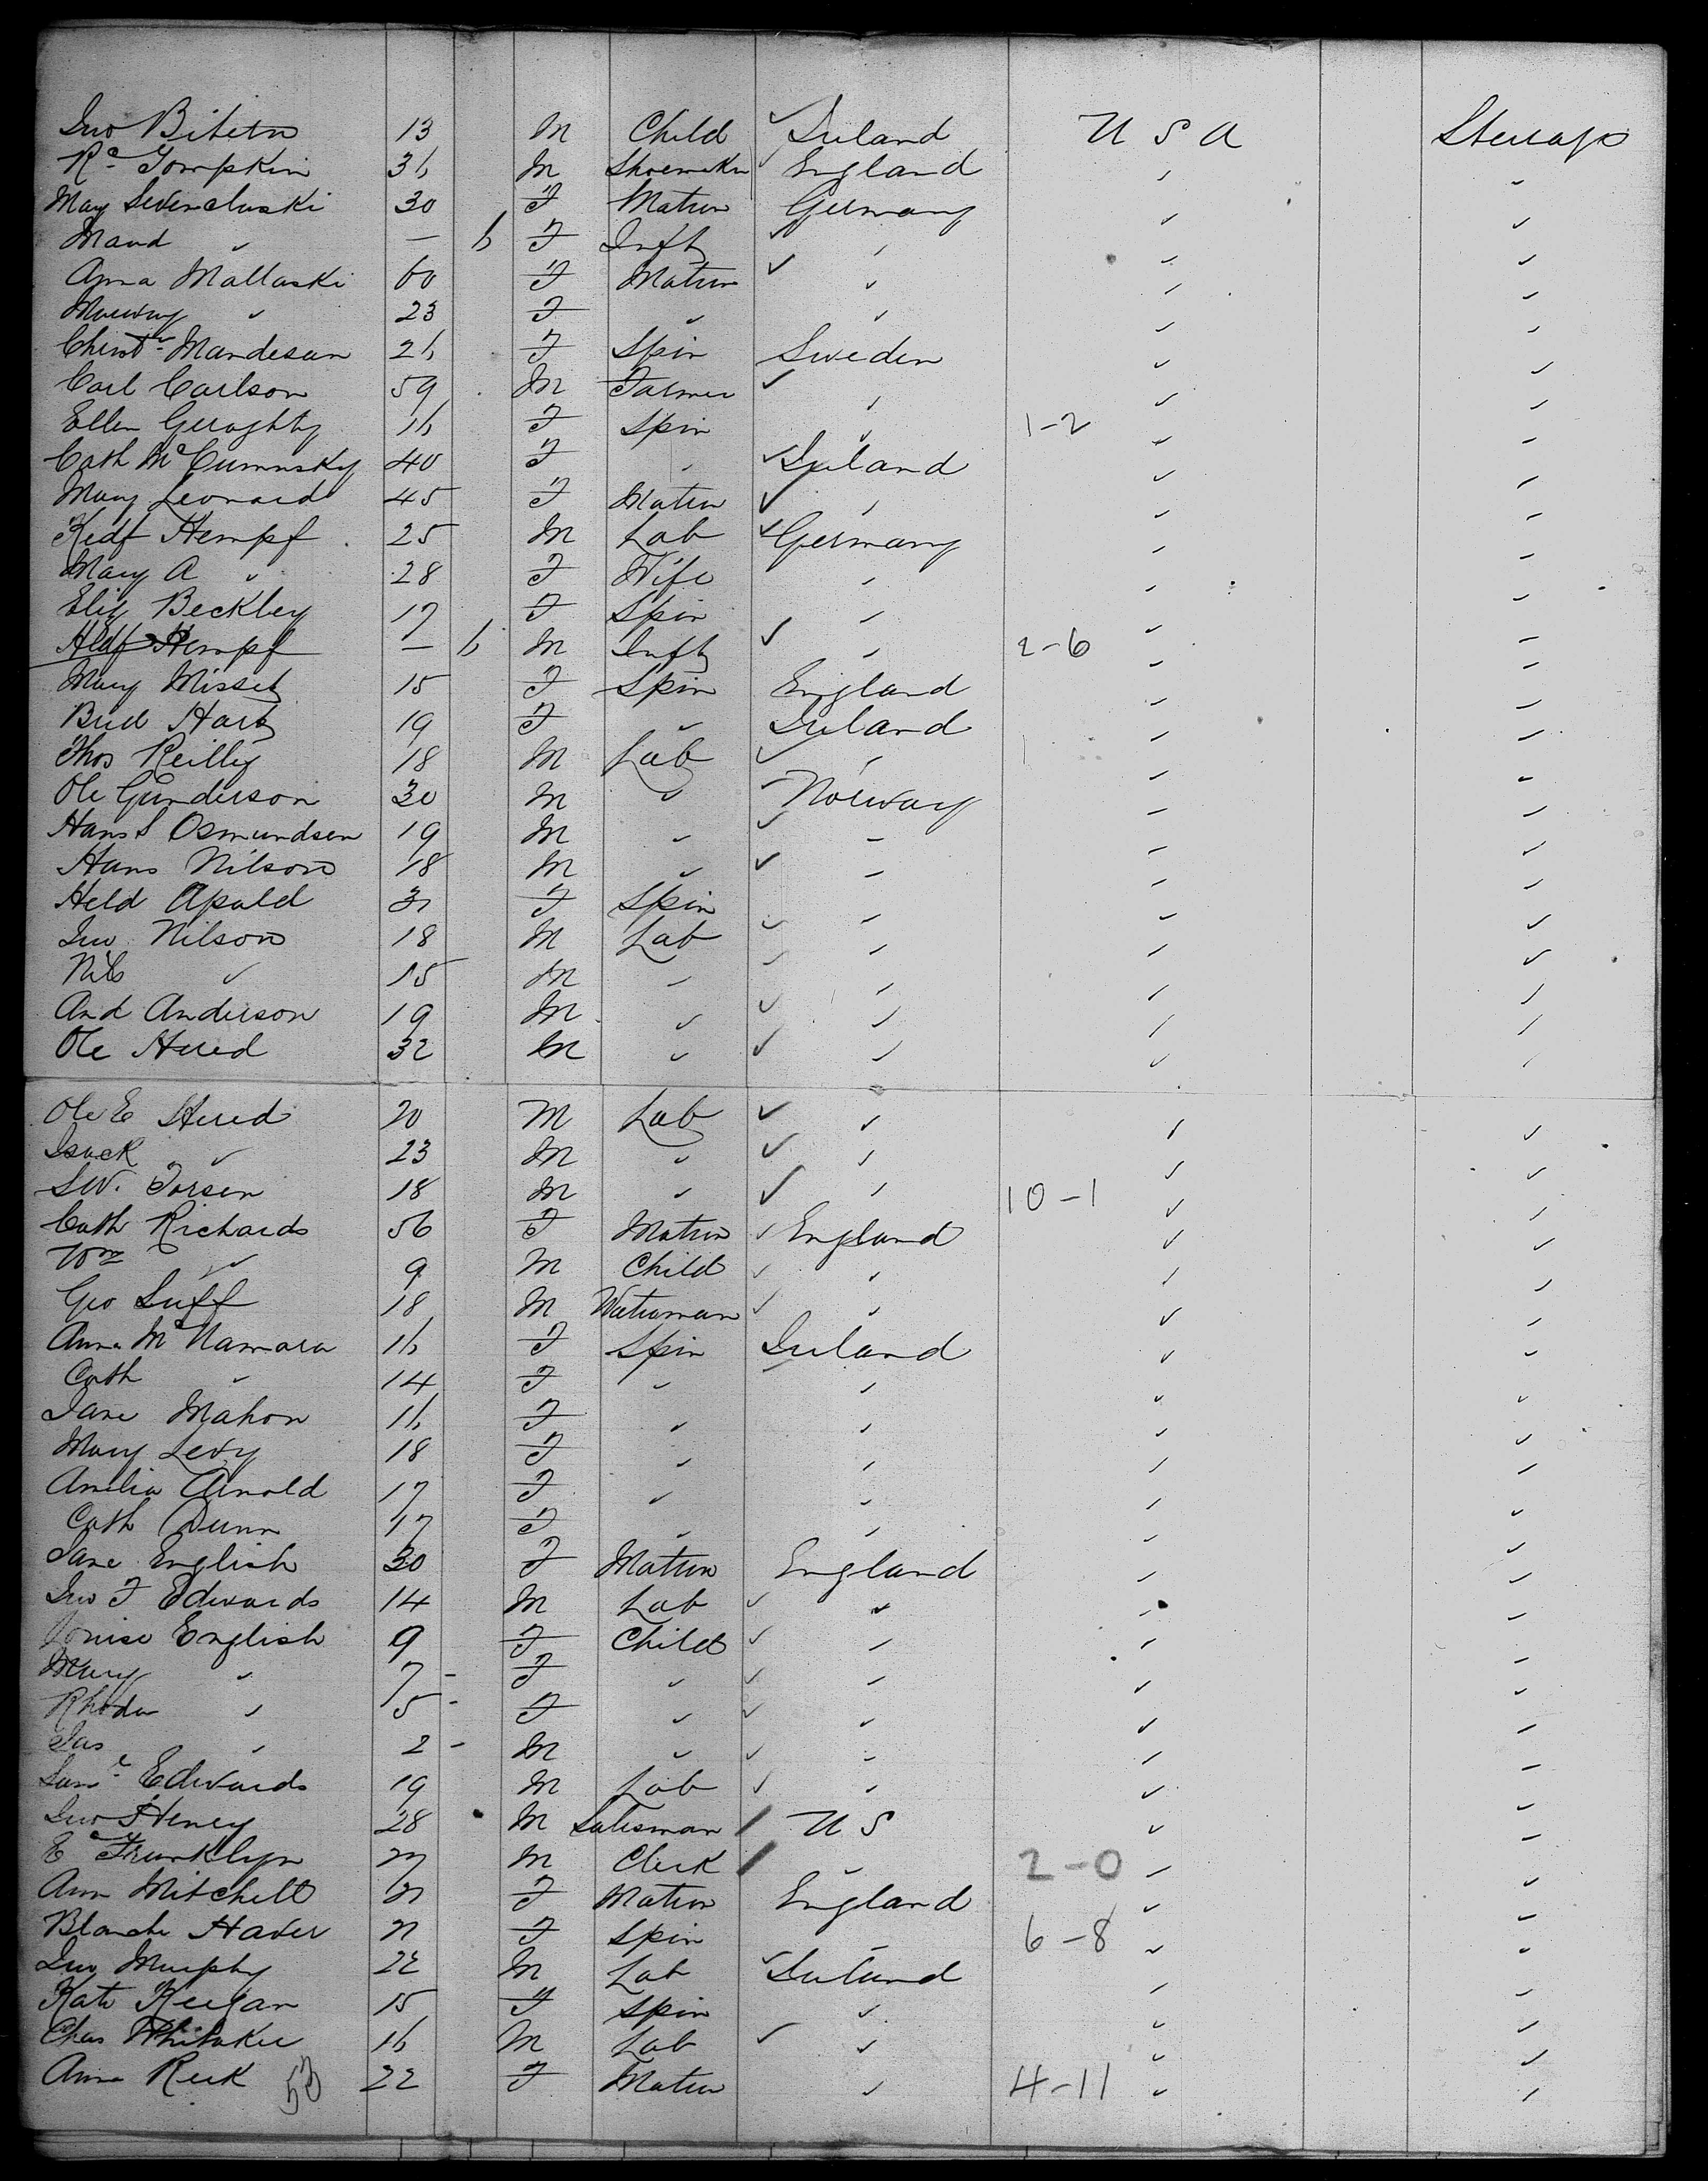 Jno Biteta 13 M Child ✓ Ireland U S A Steerage
Rd Tompkin 36 M Shoemaker England ✓ ✓
Mary 30 F Matron Germany ✓ ✓
Maud ✓ — 6 F Inft ✓ ✓ ✓ ✓
Anna Mallaski 60 F Matron ✓ ✓ ✓ ✓
✓ 23 F ✓ ✓ ✓ ✓
Mandesan 26 F Spin Sweden ✓ ✓
Carl Carlson 59 M Farmer ✓ ✓ ✓ ✓
Ellen Geraghty 16 F Spin ✓ 1-2 ✓ ✓
Cath McCumisky 40 F ✓ ✓ Ireland ✓ ✓
Mary Leonard 45 F Matron ✓ ✓ ✓ ✓
Hempf 25 M Lab ✓ Germany ✓ ✓
Mary A ✓ 28 F Wife ✓ ✓ ✓
Eliz Beckley 17 F Spin ✓ ✓ ✓
Hempf — 6 M Inft ✓ ✓ 2-6 ✓ ✓
Mary Missety 15 F Spin England ✓ ✓
Brid Harty 19 F ✓ Ireland ✓ ✓
Thos Reilly 18 M Lab ✓ ✓ ✓ ✓
Ole Gunderson 30 M ✓ Norway ✓ ✓
Hans S Osmundsen 19 M ✓ ✓ ✓ ✓ ✓
Hans Nilson 18 M ✓ ✓ ✓ ✓ ✓
Held Apald F Spin ✓ ✓ ✓
Jno Nilson 18 M Lab ✓ ✓ ✓ ✓
Nils ✓ 15 M ✓ ✓ ✓ ✓ ✓
And Anderson 19 M ✓ ✓ ✓ ✓ ✓
Ole Hered 32 M ✓ ✓ ✓ ✓ ✓
Ole E Hered 20 M Lab ✓ ✓ ✓ ✓
Isack ✓ 23 M ✓ ✓ ✓ ✓ ✓
Torsen 18 M ✓ ✓ ✓ 10-1 ✓ ✓
Cath Richards 56 F Matron ✓ England ✓ ✓
Wm ✓ 9 M Child ✓ ✓ ✓ ✓
Geo Luff 18 M Waterman ✓ ✓ ✓ ✓
Anna McNamara 16 F Spin Ireland ✓ ✓
Cath ✓ 14 F ✓ ✓ ✓ ✓
Jane Mahon 16 F ✓ ✓ ✓ ✓
Mary Levy 18 F ✓ ✓ ✓ ✓
Amelia Arnold 17 F ✓ ✓ ✓ ✓
Cath Dunn 17 F ✓ ✓ ✓ ✓
Jane English 30 F Matron England ✓ ✓
Jno F Edwards 14 M Lab ✓ ✓ ✓ ✓
Louise English 9 F Child ✓ ✓ ✓ ✓
Mary ✓ 7 - F ✓ ✓ ✓ ✓ ✓
Rhoda ✓ 5 - F ✓ ✓ ✓ ✓ ✓
Jas ✓ 2 - M ✓ ✓ ✓ ✓ ✓
Saml Edwards 19 M Lab ✓ ✓ ✓ ✓
Jno Heney 28 M Salesman / U S ✓ ✓
E Franklyn M Clerk / ✓ 2-0 ✓ ✓
Ann Mitchell F Matron England ✓ ✓
Blanche Haver F Spin ✓ 6-8 ✓ ✓
Jno Murphy 22 M Lab ✓ Ireland ✓ ✓
Kate Keegan 15 F Spin ✓ ✓ ✓
Chas Whitaker 16 M Lab ✓ ✓ ✓ ✓
Anna Reek 22 F Matron ✓ 4-11 ✓ ✓
53